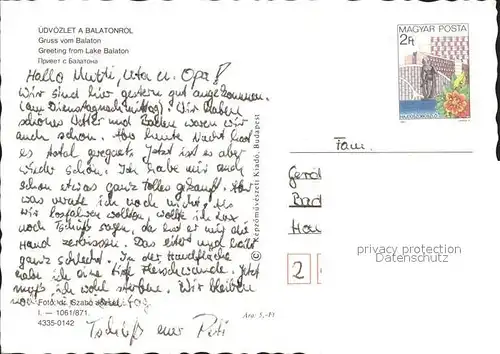 ÜDVÖZLET A BALATONRÓL
Gruss vom Balaton
Greeting from Lake Balaton
Привет с Балатона
Hallo Mutti, Uta u. Opa!
Wir sind hier gestern gut angekommen.
(am Dienstagnachmittag). Wir haben
schönes Wetter und baden waren wir
auch schon. Nur heute Nacht hat
es total geregnet. Jetzt ist es aber
wieder schön. Ich habe mir auch
schon etwas ganz Tolles gekauft. Aber
was verrate ich noch nicht. Als
wir losfahren wollten, wollte ich Lux
noch Tschüß sagen, da hat er mir die
Hand zerbissen. Das eitert und heilt
ganz schlecht. In der Handfläche
habe ich eine tiefe Fleischwunde. Jetzt
muß ich wohl sterben. Wir bleiben
noch
Tschüß eure Peti
Fotó: id. Szabó
I. — 1061/871.
4335-0142
Ára: 5,- Ft
© Képzőművészeti Kiadó, Budapest
MAGYAR POSTA
2Ft
Fam.
Gerd
Bad
Hau
2
privacy protection
Datenschutz